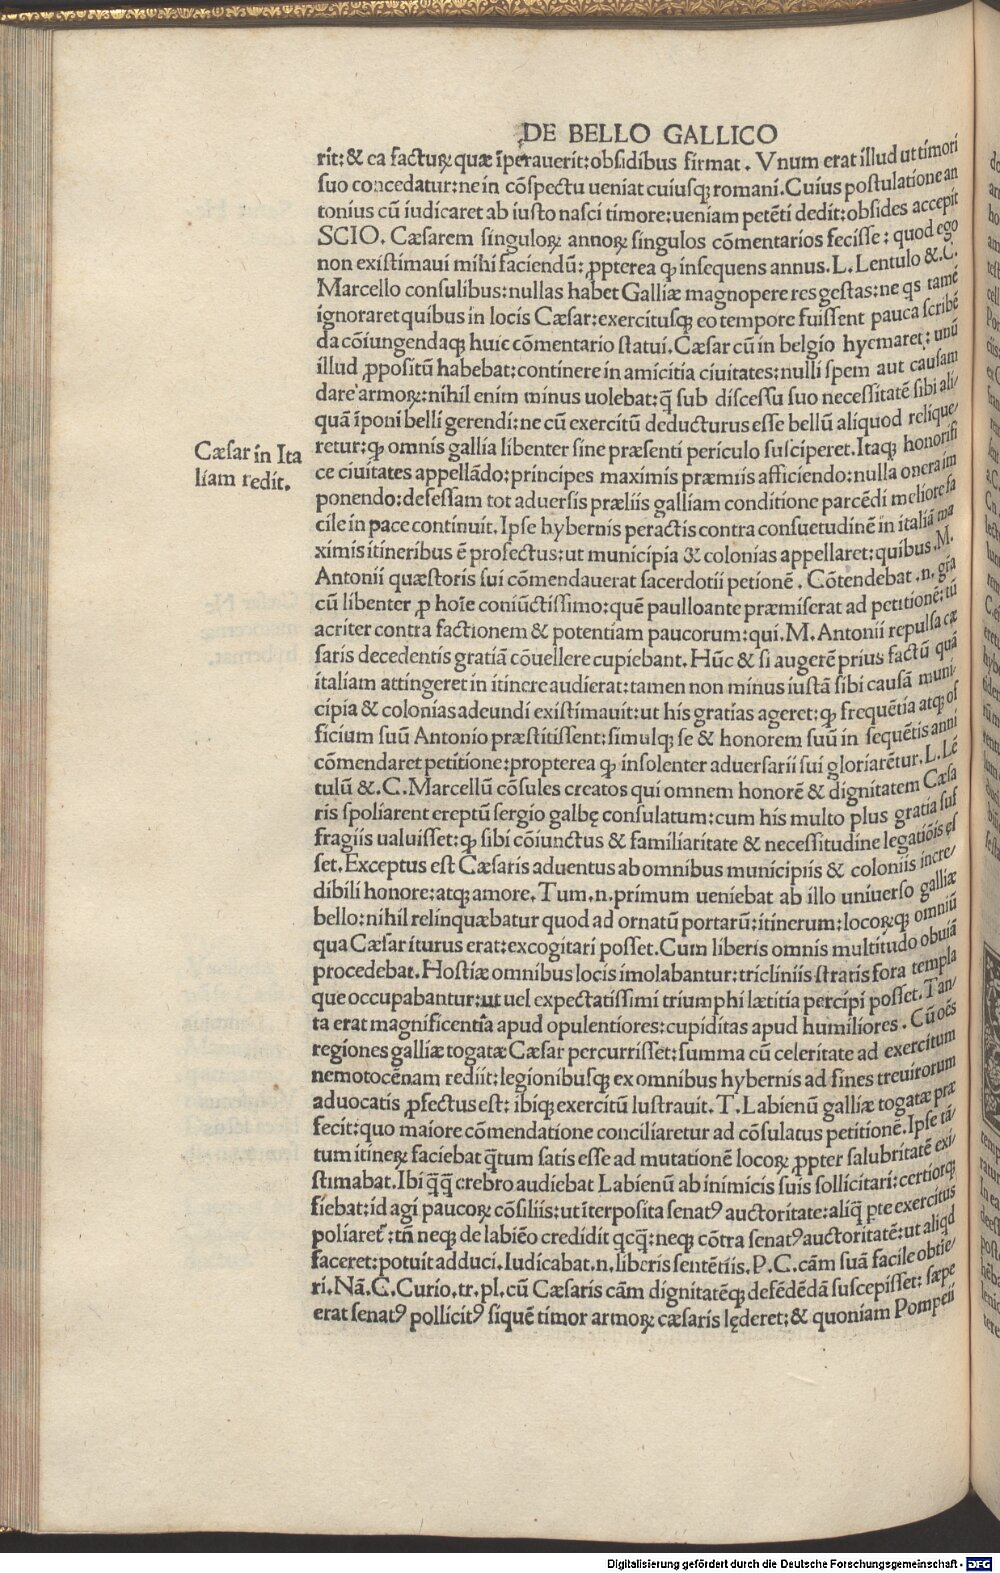 DE BELLO GALLICO
rit: & ea facturꝫ quæ īperauerit: obsidibus firmat. Vnum erat illud ut timori
suo concedatur: ne in cōspectu ueniat cuiusqꝫ romani. Cuius postulatione an
tonius cū iudicaret ab iusto nasci timore: ueniam petēti dedit: obsides accepit
SCIO. Cæsarem singuloꝝ annoꝝ singulos cōmentarios fecisse: quod ego
non existimaui mihi faciendū: ꝓpterea ꝙ insequens annus. L. Lentulo & .C.
Marcello consulibus: nullas habet Galliæ magnopere res gestas: ne qs tamē
ignoraret quibus in locis Cæsar: exercitusqꝫ eo tempore fuissent pauca scribē
da cōiungendaqꝫ huic cōmentario statui. Cæsar cū in belgio hyemaret: unū
illud ꝓpositū habebat: continere in amicitia ciuitates: nulli spem aut causam
dare armoꝝ: nihil enim minus uolebat: q̄ sub discessu suo necessitatē sibi ali/
quā īponi belli gerendi: ne cū exercitū deducturus esse bellū aliquod relique/
retur: ꝙ omnis gallia libenter sine præsenti periculo susciperet. Itaqꝫ honorifi
Cæsar in Ita
liam redit.
ce ciuitates appellādo: principes maximis præmiis afficiendo: nulla onera im
ponendo: defessam tot aduersis præliis galliam conditione parcēdi meliore fa
cile in pace continuit. Ipse hybernis peractis contra consuetudinē in italiā ma
ximis itineribus ē profectus: ut municipia & colonias appellaret: quibus .M.
Antonii quæstoris sui cōmendauerat sacerdotii petionē. Cōtendebat .n. gr̄a
cū libenter ꝓ hoīe coniūctissimo: quē paulloante præmiserat ad petitionē: tū
acriter contra factionem & potentiam paucorum: qui. M. Antonii repulsa cæ
saris decedentis gratiā cōuellere cupiebant. Hūc & si augerē prius factū quā
italiam attingeret in itinere audierat: tamen non minus iustā sibi causā muni
cipia & colonias adeundi existimauit: ut his gratias ageret: ꝙ frequētia atqꝫ of
ficium suū Antonio præstitissent: simulqꝫ se & honorem suū in sequētis anni
cōmendaret petitione: propterea ꝙ insolenter aduersarii sui gloriarētur. L. Lē
tulū & .C. Marcellū cōsules creatos qui omnem honorē & dignitatem Cæsa
ris spoliarent ereptū sergio galbę consulatum: cum his multo plus gratia suf
fragiis ualuisset: ꝙ sibi cōiunctus & familiaritate & necessitudine legatiōis es
set. Exceptus est Cæsaris aduentus ab omnibus municipiis & coloniis incre/
dibili honore: atqꝫ amore. Tum .n. primum ueniebat ab illo uniuerso galliæ
bello: nihil relinquæbatur quod ad ornatū portarū: itinerum: locoꝝqꝫ omniū
qua Cæsar iturus erat: excogitari posset. Cum liberis omnis multitudo obuiā
procedebat. Hostiæ omnibus locis imolabantur: tricliniis stratis fora templa
que occupabantur: ut uel expectatissimi triumphi lætitia percipi posset. Tan/
ta erat magnificentia apud opulentiores: cupiditas apud humiliores. Cū oēs
regiones galliæ togatæ Cæsar percurrisset: summa cū celeritate ad exercitum
nemotocēnam rediit: legionibusqꝫ ex omnibus hybernis ad fines treuirorum
aduocatis ꝓfectus est: ibiqꝫ exercitū lustrauit. T. Labienū galliæ togatæ præ
fecit: quo maiore cōmendatione conciliaretur ad cōsulatus petitionē. Ipse tā/
tum itineꝝ faciebat q̄tum satis esse ad mutationē locoꝝ ꝓpter salubritatē exi/
stimabat. Ibi q̄q̄ crebro audiebat Labienū ab inimicis suis sollicitari: certiorqꝫ
fiebat: id agi paucoꝝ cōsiliis: ut īterposita senatꝰ auctoritate: aliq̄ ꝑte exercitus
poliaret̄: tn̄ neqꝫ de labiēo credidit qcq̄: neqꝫ cōtra senatꝰ auctoritatē: ut aliqd
faceret: potuit adduci. Iudicabat .n. liberis sentētiis. P. C. cām suā facile obtie/
ri. Nā. C. Curio. tr. pl. cū Cæsaris cām dignitatēqꝫ defēdēdā suscepisset: sæpe
erat senatꝰ pollicitꝰ siquē timor armoꝝ cæsaris lęderet: & quoniam Pompeii
Digitalisierung gefördert durch die Deutsche Forschungsgemeinschaft - DFG